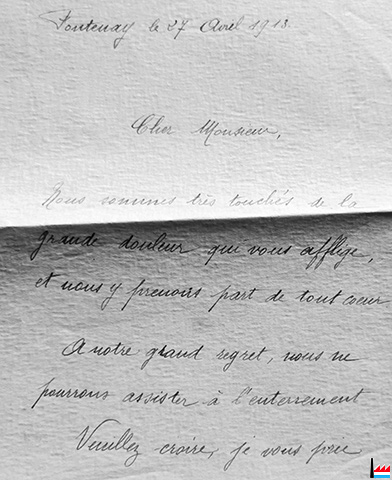 Fontenay le 27 Avril 1913.
Cher Monsieur,
Nous sommes très touchés de la
grande douleur qui vous afflige,
et nous y prenons part de tout coeur
A notre grand regret, nous ne
pourrons assister à l'enterrement
Veuillez croire, je vous prie